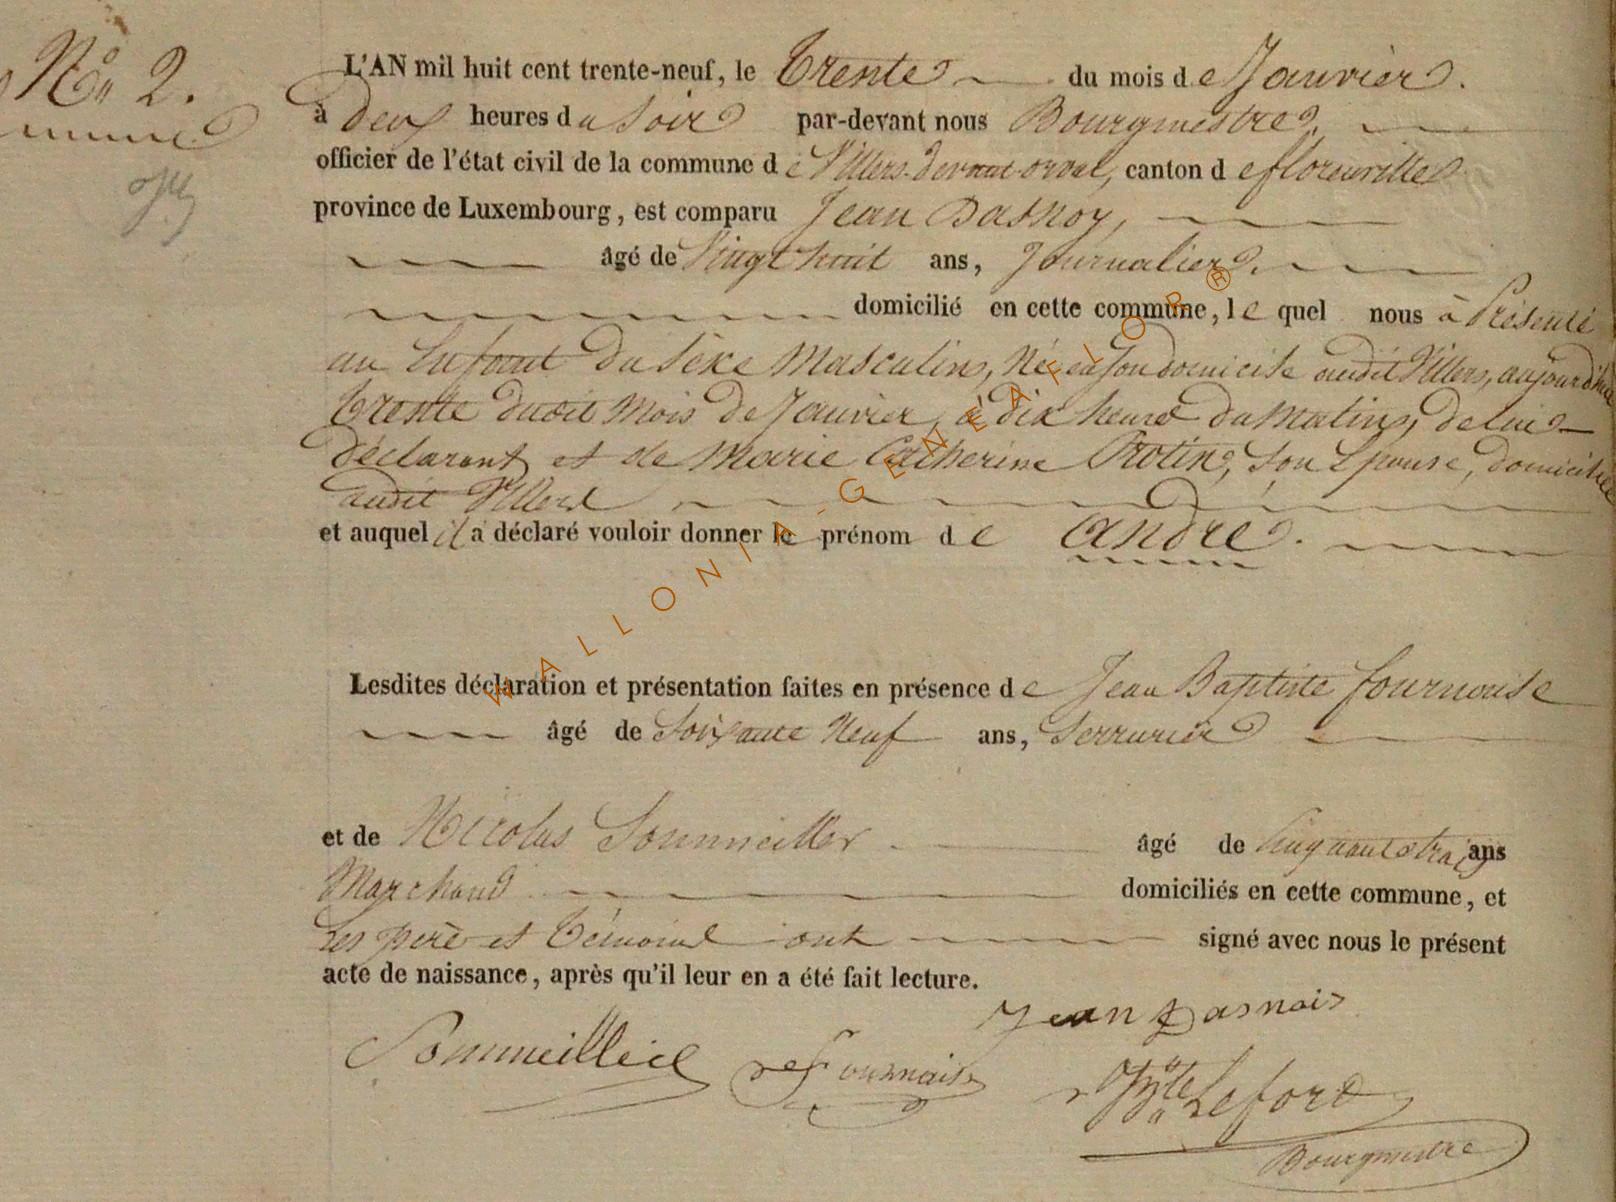 N° 2.
L'AN mil huit cent trente-neuf, le Trente du mois de Janvier.
à deux heures du soir par-devant nous Bourgmestre,
officier de l'état civil de la commune de Villers-devant-orval, canton de florenville
province de Luxembourg, est comparu Jean Dasnoy,
âgé de Vingt huit ans, Journalier,
domicilié en cette commune, lequel nous à Présenté
un Enfant du Séxe Masculin, Né en son domicile audit Villers, aujourd'hui
trente dudit Mois de Janvier, à dix heures du Matin, de lui
déclarant et de Marie Catherine Protin, son Epouse, domiciliée
audit Villers
et auquel il a déclaré vouloir donner le prénom de andré.
Lesdites déclaration et présentation faites en présence de Jean Baptiste fournaise
âgé de Soixante Neuf ans, Serrurier
et de Nicolas Sommeiller âgé de Cinquante trois ans
Marchand domiciliés en cette commune, et
Les père et témoins ont signé avec nous le présent
acte de naissance, après qu'il leur en a été fait lecture.
Jean Dasnois
Sommeillier Fournaise Lefort
Bourgmestre
WALLONIA-GENEAFLOR®